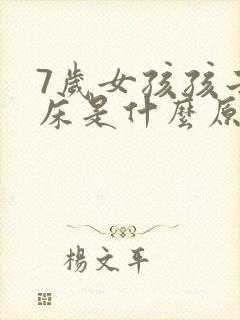 7歲女孩孩
床是什麼原
楊文平